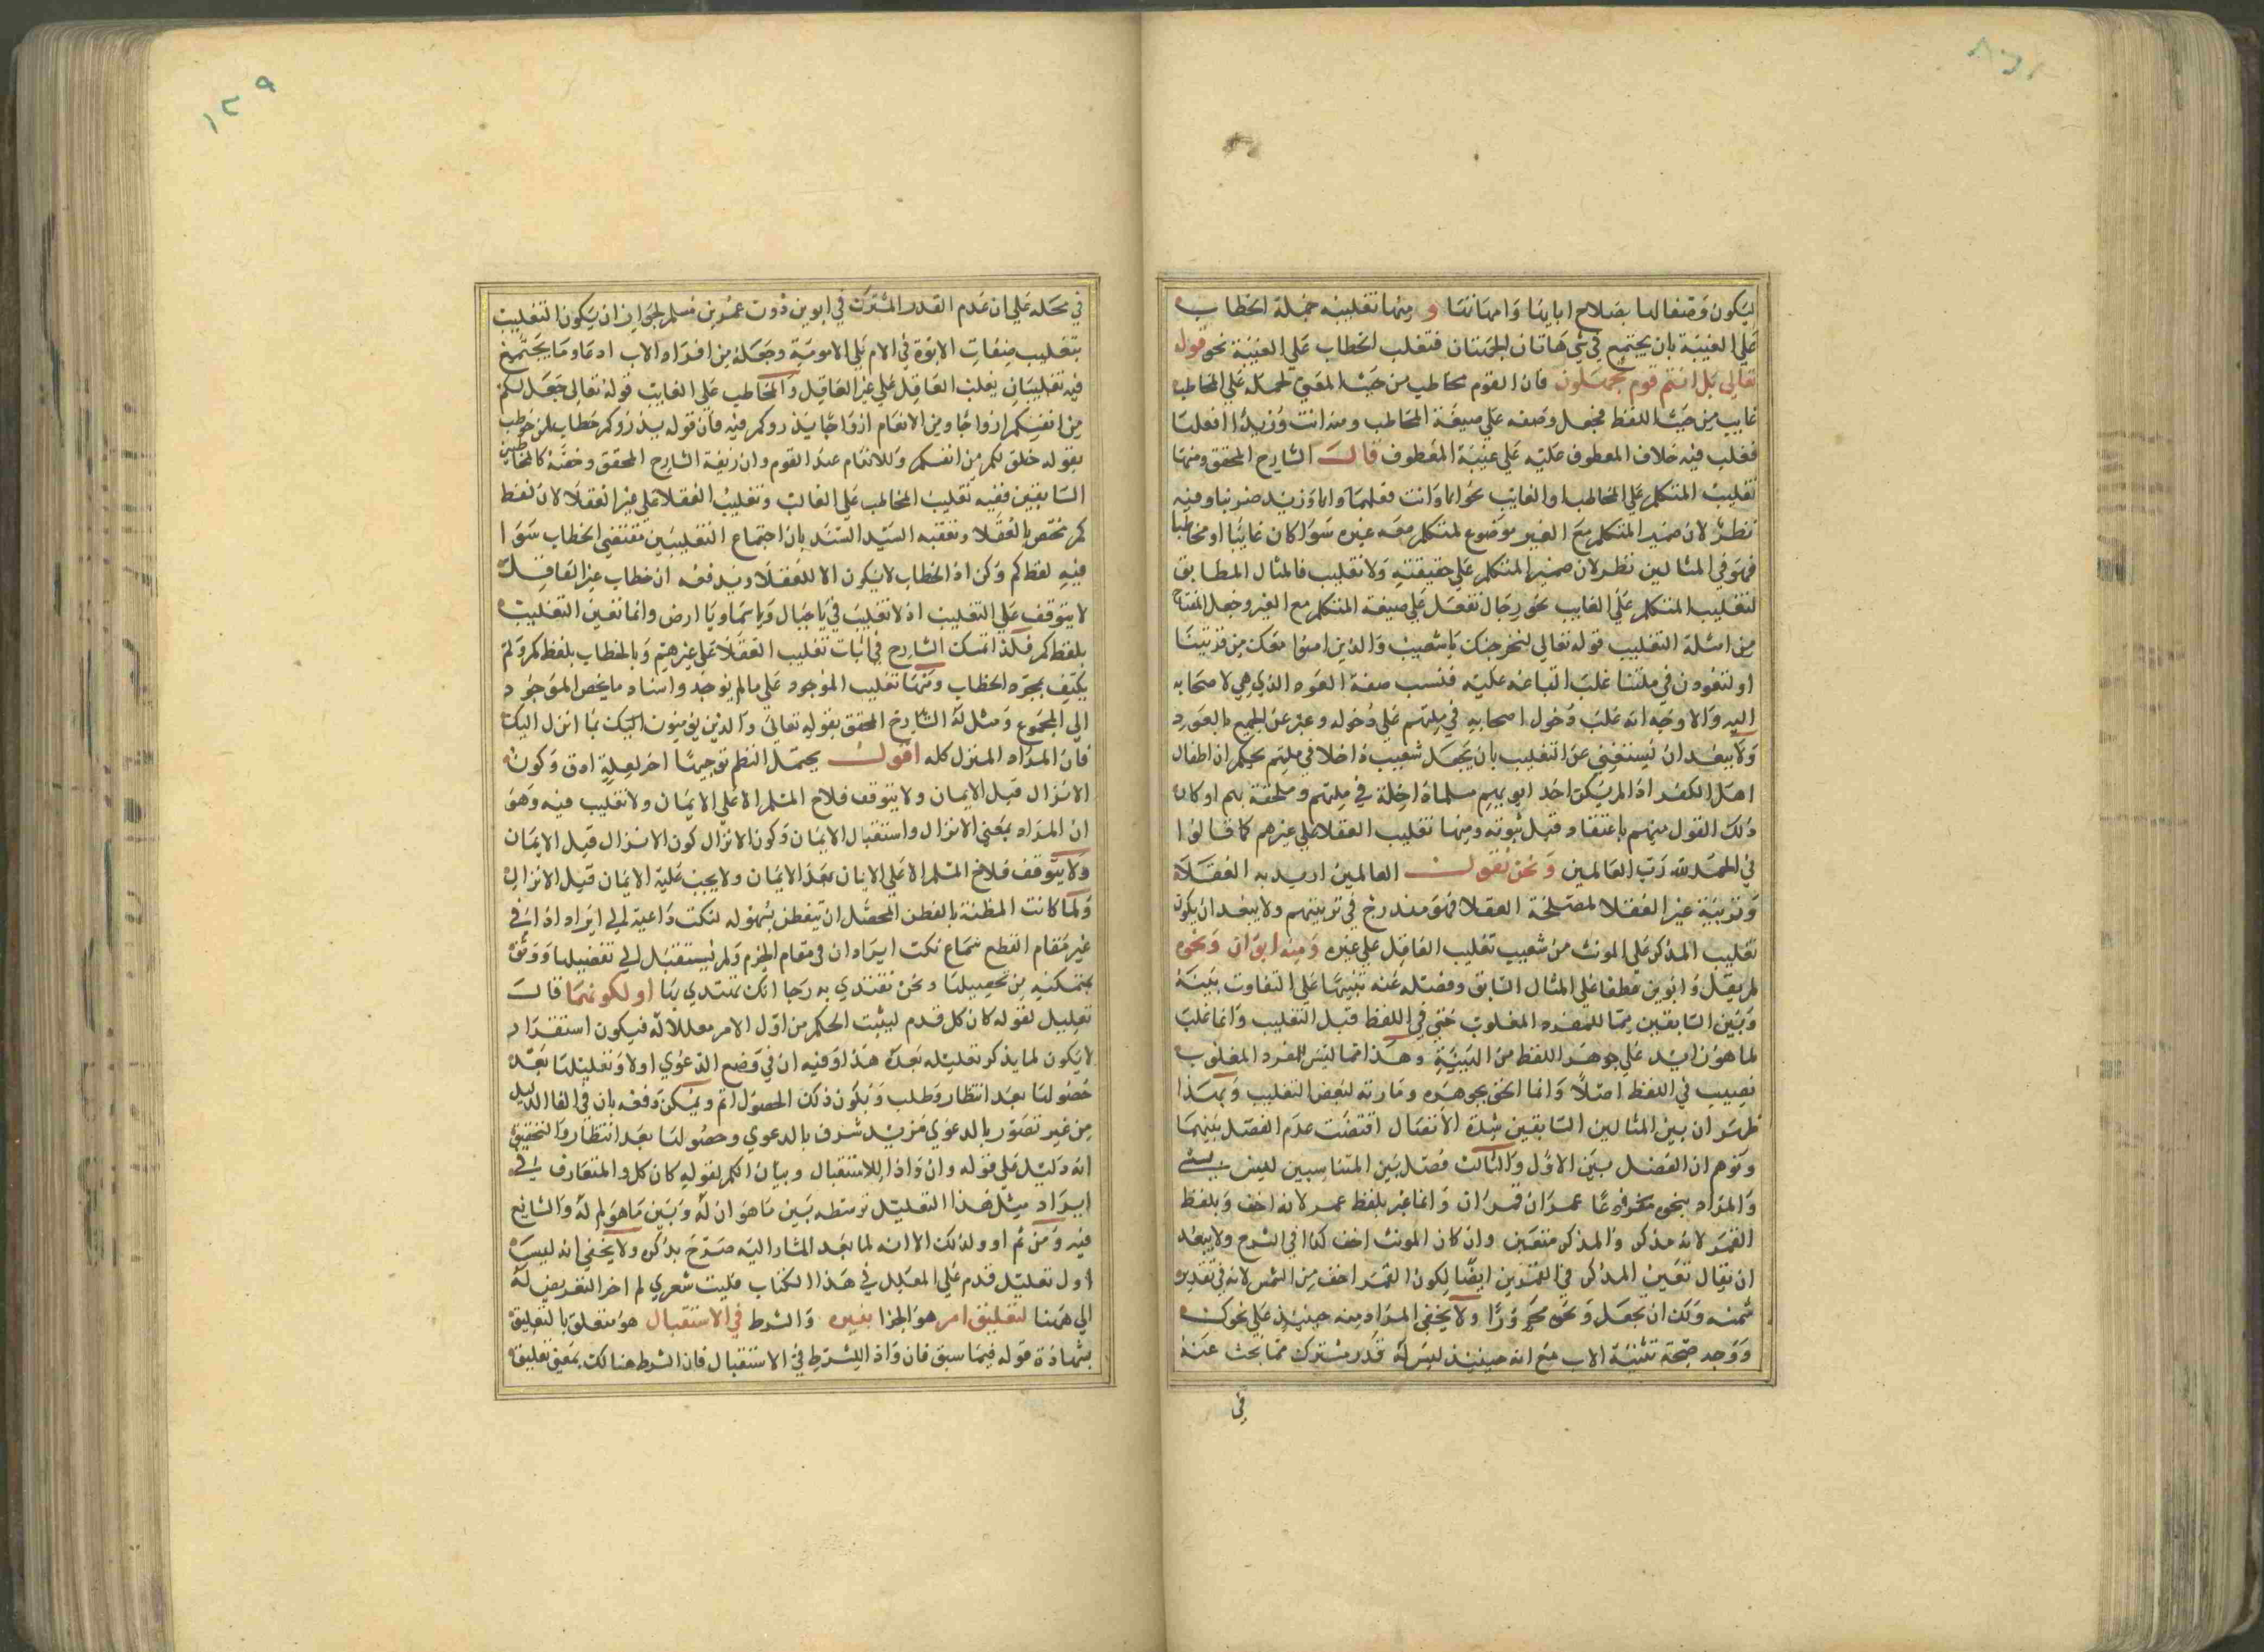 ليكون وصفا لها بصلاح ابايها وامهاتها و منها تغليب جملة الخطاب
على الغيبة بان يجتمع في شي هاتان الجهتان فتغلب الخطاب على الغيبة نحو قوله
تعالى بل انتم قوم تجهلون فان القوم مخاطب من حيث المعنى لحمله على المخاطب
غايب من حيث اللفظ فجعل وصفه على صيغة المخاطب ومنه انت وزيد افعلتما
فغلب فيه خلاف المعطوف عليه على غيبة المعطوف قال الشارح المحقق ومنها
تغليب المتكلم على المخاطب او الغايب نحو انا وانت فعلنا وانا وزيد ضربنا وفيه
نظر لان ضمير المتكلم مع الغير موضوع لمتكلم معه غيره سوا كان غايبا او مخاطبا
فهو في المثالين نظر لان ضمير المتكلم على حقيقته ولا تغليب فالمثال المطابق
لتغليب المتكلم على الغايب نحو رجال نفعل على صيغة المتكلم مع الغير وجعل المفتاح
من امثلة التغليب قوله تعالى لنخرجنك يا شعيب والذين امنوا معك من قريتنا
او لتعودن في ملتنا غلب اتباعه عليه فنسب صفة العود الذي هي لاصحابه
اليه والاوجه انه غلب دخول اصحابه في ملتهم على دخوله وعبر عن الجميع بالعود
ولا يبعد ان يستغنى عن التغليب بان يجعل شعيب داخلا في ملتهم بحكم ان اطفال
اهل الكفر اذا لم يكن احد ابويهم مسلما داخلة في ملتهم وملحقة بهم او كان
ذلك القول منهم باعتقاد قبل ثبوته ومنها تغليب العقلا على غيرهم كما قالوا
في الحمد لله رب العالمين ونحن نقول العالمين اريد به العقلا
وتربية غير العقلا لمصلحة العقلا فهو مندرج في تربيتهم ولا يبعد ان يكون
تغليب المذكر على المونث من شعيب تغليب العاقل على غيره ومنه ابوان ونحوه
لم يقل وابوين عطفا على المثال السابق وفصله عنه تنبيها على التفاوت بينه
وبين السابقين مما للمفرد المغلوب حتى في اللفظ قبل التغليب وانما غلب
لما هو زايد على جوهر اللفظ من البنية وهذا مما ليس للمفرد المغلوب
نصيب في اللفظ اصلا وانما الحق بجوهره ومارته لبعض التغليب وبهذا
ظهر ان بين المثالين السابقين شدة الاتصال اقتضت عدم الفصل بينهما
وتوهم ان الفصل بين الاول والثالث فصل بين المتناسبين ليس بشي
والمراد بنحوه مرفوعا عمران قمران وانما عبر بلفظ عمر لانه اخف وبلفظ
القمر لانه مذكر والمذكر متعين وان كان المونث اخف كذا في الشرح ولا يبعد
ان يقال تعين المذكر في القمرين ايضا لكون القمر اخف من الشمس لانه في تقدير
شمسه ولك ان تجعل ونحوه مجرورا ولا يخفى المراد منه حينيذ على نحوك
ووجه صحة تثنية الاب مع انه حينيذ ليس له قدر مشترك مما بحث عنه
في
١٢٩
في محله على ان عدم القدر المشترك في ابوين دون عمرين مسلم لجواز ان يكون التغليب
بتغليب صفات الابوة في الام على الامومية وجعله من افراد الاب ادعا وما يجتمع
فيه تغليبان يغلب العاقل على غير العاقل والمخاطب على الغايب قوله تعالى جعل لكم
من انفسكم ازواجا ومن الانعام ازواجا يذروكم فيه فان قوله يذروكم خطاب لمن خوطب
بقوله خلق لكم من انفسكم وللانعام عند القوم وان زيفه الشارح المحقق وخصه كالمخاطبين
السابقين ففيه تغليب المخاطب على الغايب وتغليب العقلا على غير العقلا لان لفظ
كم مختص بالعقلا وتعقبه السيد السند بان اجتماع التغليبين يقتضي الخطاب سوا
فيه لفظ كم وكن اذ الخطاب لا يكون الا للعقلا ويدفعه ان خطاب غير العاقل
لا يتوقف على التغليب اذ لا تغليب في يا جبال ويا سما ويا ارض وانما تعين التغليب
بلفظ كم فلذا تمسك الشارح في اثبات تغليب العقلا على غيرهم وبالخطاب بلفظ كم ولم
يكتف بمجرد الخطاب ومنها تغليب الموجود على ما لم يوجد واسناد ما يخص الموجود
الى المجموع ومثل له الشارح المحقق بقوله تعالى والذين يومنون اليك بما انزل اليك
فان المراد المنزل كله اقول يحتمل النظم توجيها اخر لعله ادق وكون
الانزال قبل الايمان ولا يتوقف فلاح المسلم الا على الايمان ولا تغليب فيه وهو
ان المراد بمعنى الانزال واستقبال الايمان وكون الانزال كون الانزال قبل الايمان
ولا يتوقف فلاح المسلم الا على الايمان بعد الايمان ولا يجب عليه الايمان قبل الانزال
ولما كانت المظنة بالفطن المحصل ان يتفطن بسهوله لنكت داعية الى ايراد اذا في
غير مقام القطع سماع نكت ايراد ان في مقام الجزم ولم يستقبل الى تفصيلها ووثق
بتمكنه من تحصيلها ونحن نقتدي به رجا انك تهتدي بها او لكونهما قال
تعليل لقوله كان كل قدم ليثبت الحكم من اول الامر معللا له فيكون استقراره
لا يكون لما يذكر تعليله بعده هذا وفيه ان في وضع الدعوي اولا وتعليلها بعد
حصولها بعد انتظار وطلب ويكون ذلك الحصول اتم ويمكن دفعه بان في القا الدليل
من غير تصور بالدعوي مزيد شرف بالدعوي وحصولها بعد انتظار والتحقيق
انه دليل على قوله وان واذا للاستقبال وبيان الكم لقوله كان كل والمتعارف في
ايراد مثل هذا التعليل توسطه بين ما هو ان له وبين ما هو لم له والشايع
فيه ومن ثم او ولذلك الا انه لما بعد المشار اليه صرح بذكره ولا يخفى انه ليس
اول تعليل قدم على المعلل في هذا الكتاب فليت شعري لم اخر التعريض له
الى ههنا لتعليق امر هو الجزا بغيره والشرط في الاستقبال هو متعلق بالتعليق
بشهادة قوله فيما سبق فان واذا للشرط في الاستقبال فان الشرط هنالك بمعنى تعليق